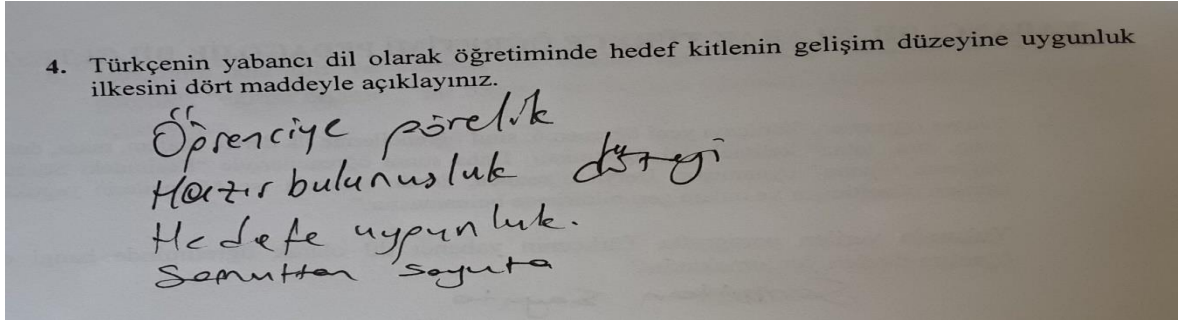 4. Türkçenin yabancı dil olarak öğretiminde hedef kitlenin gelişim düzeyine uygunluk
ilkesini dört maddeyle açıklayınız.
Öğrenciye görelik
Hazır bulunuşluk düzeyi
Hedefe uygunluk.
Somuttan soyuta